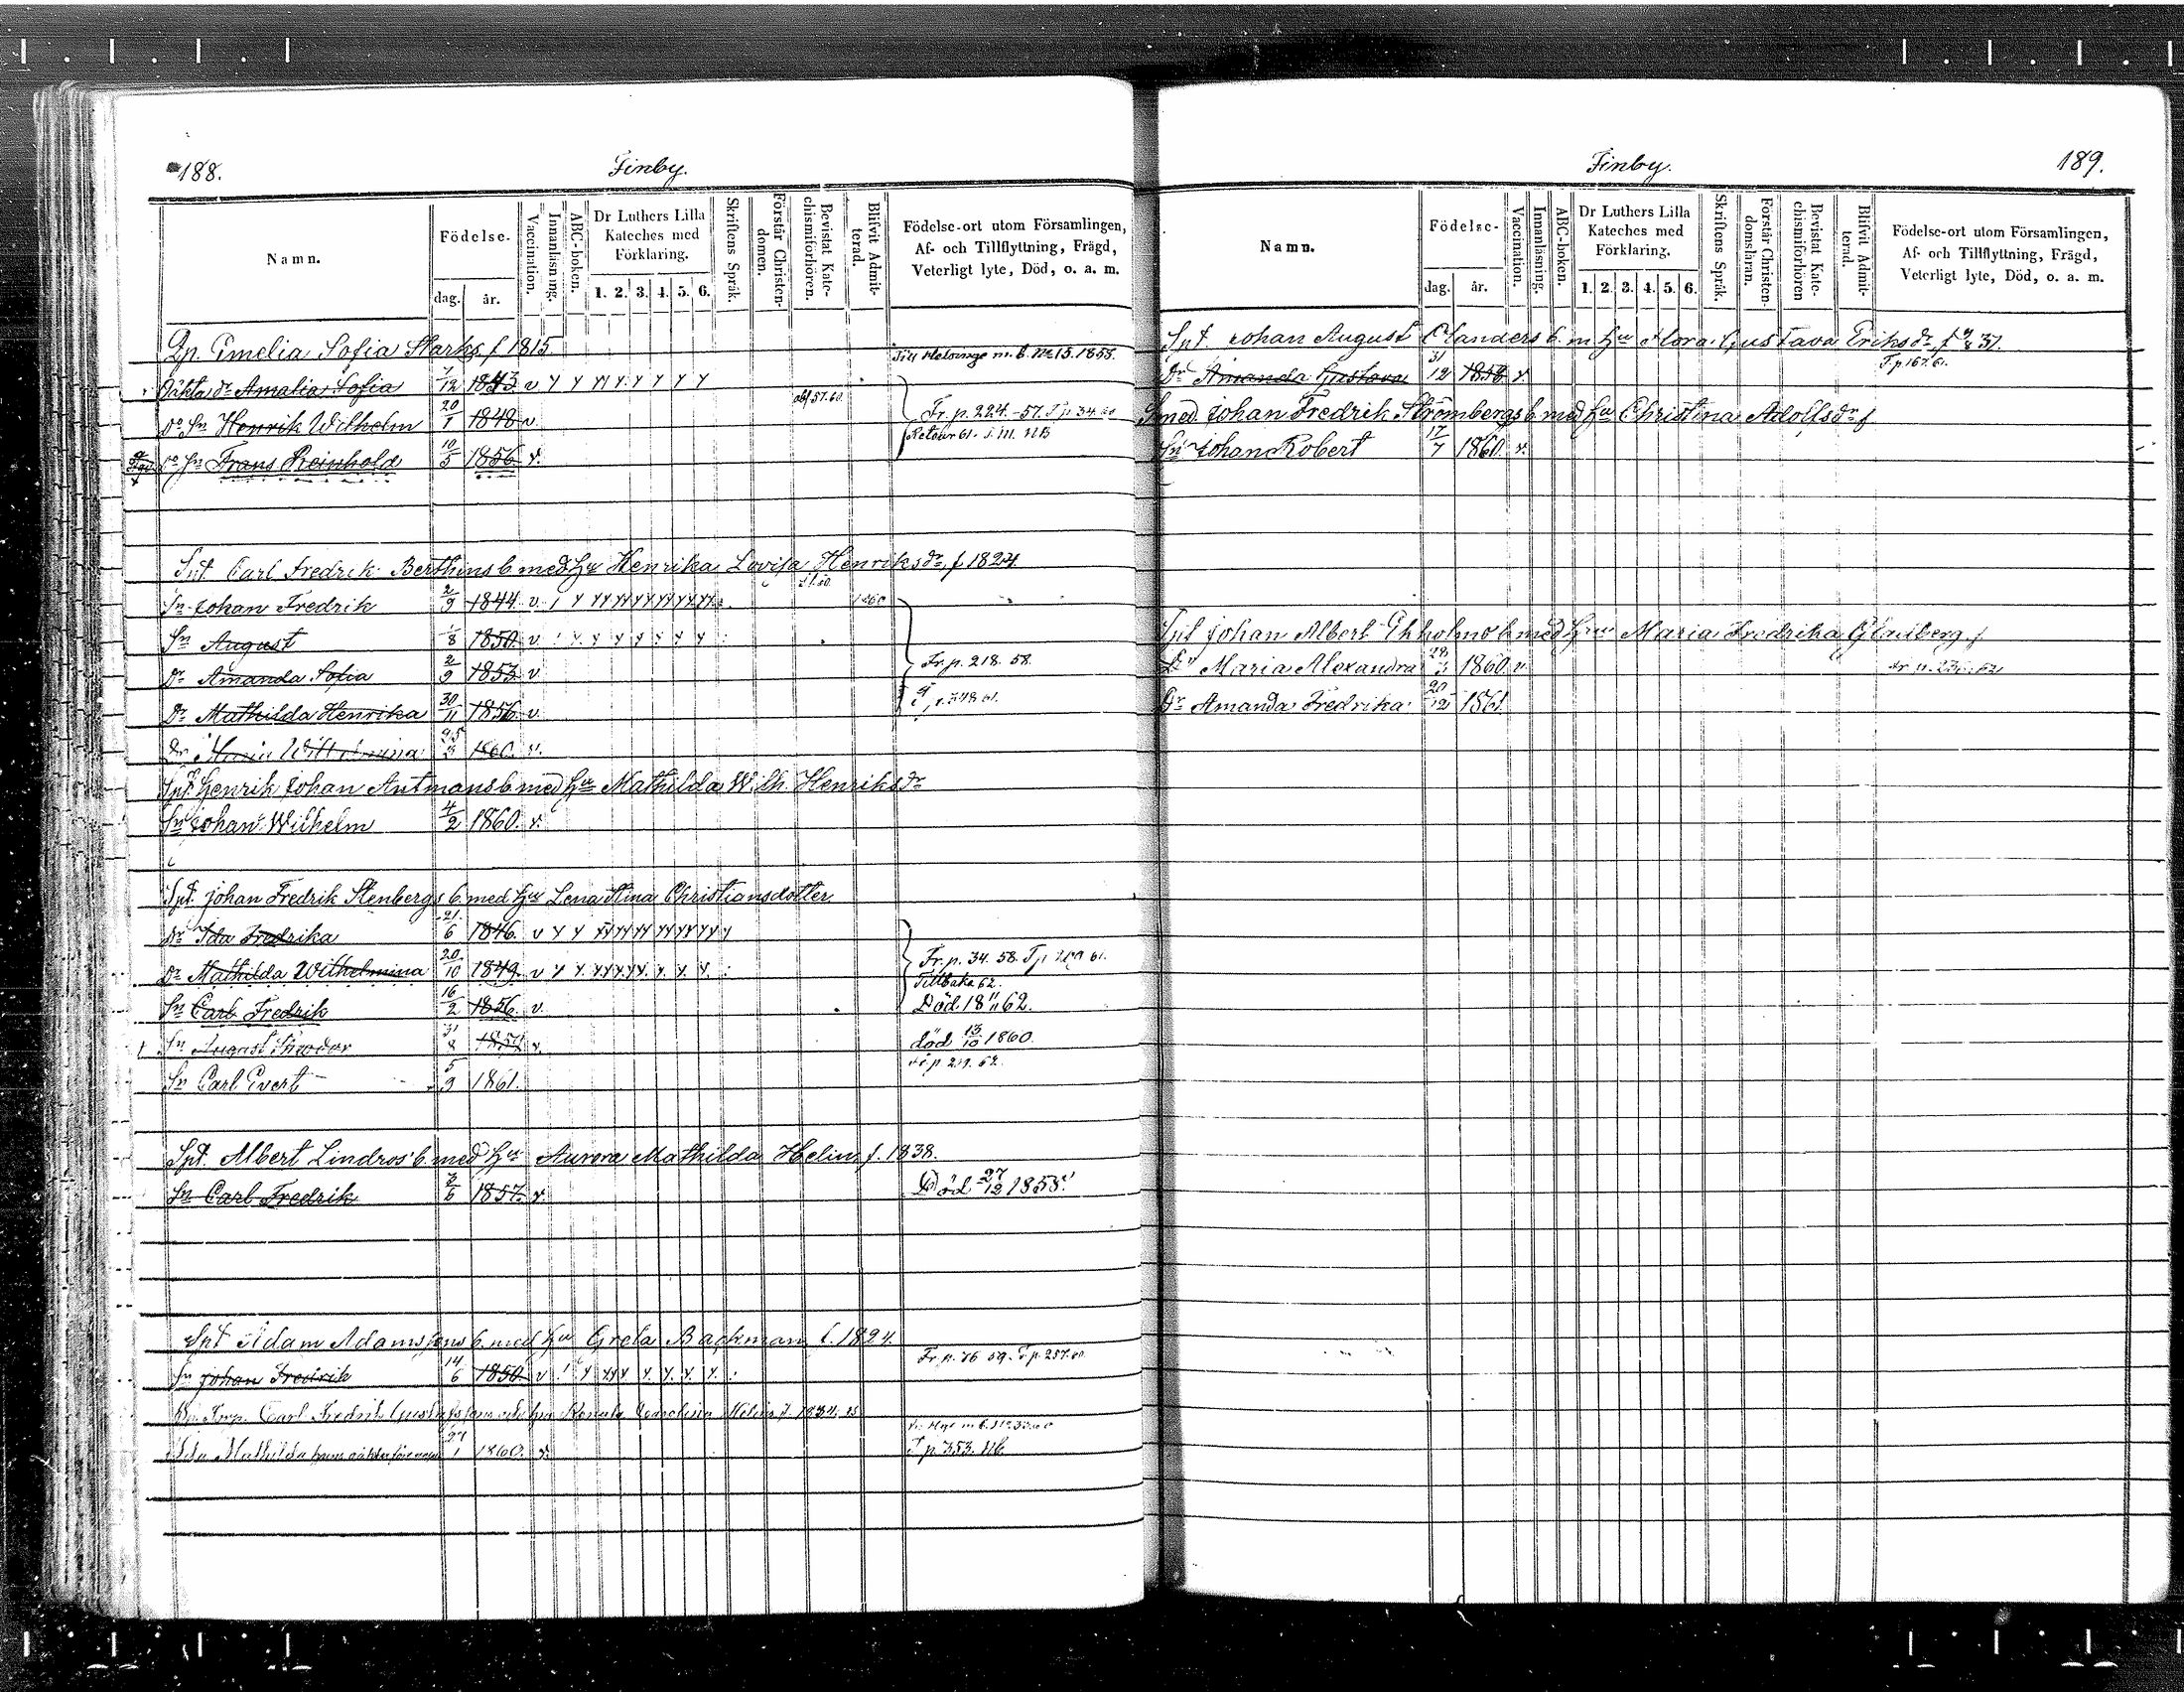 188.
Finby.
Namn.
Födelse.
dag.
år.
Vaccination.
Innanläsning.
ABC-boken.
Dr Luthers Lilla Kateches med Förklaring.
1. 2. 3. 4. 5. 6.
Skriftens Språk.
Förstår Christendomen.
Bevistat Katechismiförhören.
Blifvit Admitterad.
Födelse-ort utom Församlingen, Af- och Tillflyttning, Frägd, Veterligt lyte, Död, o. a. m.
Qp. Emelia Sofia Starks f 1815.
Till Helsinge m. b. No 15. 1858.
Oäkta dr Amalia Sofia 7/12 1843 v
Do Sn Henrik Wilhelm 20/1 1848 v
Fr. p. 224.-57. T p 34 60
Retour 61.
Do Sn Frans Reinhold 10/5 1856 v.
Spt. Carl Fredrik Berthens b. med hu Henrika Lovisa Henriksdr, f 1824
Sn Johan Fredrik 2/9 1844 v
Sn August 1/8 1850 v
Dr Amanda Sofia 2/9 1853 v
Fr. p. 218. 58.
Dr Mathilda Henrika 30/11 1856 v.
p. 348 61.
Dr Maria Wilhelmina 25/3 1860. v.
Spt. Henrik Johan Antmans b med hu Mathilda Wilh. Henriksdr
Sn Johan Wilhelm 4/2 1860. v.
Spt. Johan Fredrik Stenbergs b. med hu Lena Stina Christiansdotter
Dr Ida Fredrika 21/6 1846. v
Dr Mathilda Wilhelmina 20/10 1849. v
Fr. p. 34. 58.
Tillbaka 62.
Sn Carl Fredrik 16/2 1856. v.
Död. 18 11/11 62.
Sn August Theodor 31/8 1857 v.
död 13/10 1860.
Sn Carl Evert 5/9 1861.
Spt. Albert Lindros' b. med hu Aurora Mathilda Helin, f. 1838.
Sn Carl Fredrik 3/6 1857. v.
Död 27/12 1858.
Spt Adam Adamssons b. med hu Greta Backman f. 1824.
Sn Johan Fredrik 14/6 1850. v
Fr. p. 76 59. T p. 257. 60.
Carl Fredrik Gustafssons
Ida Mathilda 27/1 1860. v.
T p. 353.
Finby.
189.
Namn.
Födelse-
dag.
år.
Vaccination.
Innanläsning.
ABC-boken.
Dr Luthers Lilla Kateches med Förklaring.
1. 2. 3. 4. 5. 6.
Skriftens Språk.
Förstår Christendomsläran.
Bevistat Katechismiförhören
Blifvit Admitterad.
Födelse-ort utom Församlingen, Af- och Tillflyttning, Frägd, Veterligt lyte, Död, o. a. m.
Spt. Johan August Olanders b. m hu Flora Gustava Eriksdr
Dr Amanda Gustava 31/12 1858 v.
T p 167. 61.
Smed Johan Fredrik Strömbergs b med hu Christina Adolfsdr f
Sn Johan Robert 17/7 1860. v.
Spt Johan Albert Ekholms b. med hu Maria Fredrika Gladberg f
Dr Maria Alexandra 28/3 1860. v.
Dr Amanda Fredrika 20/12 1861.